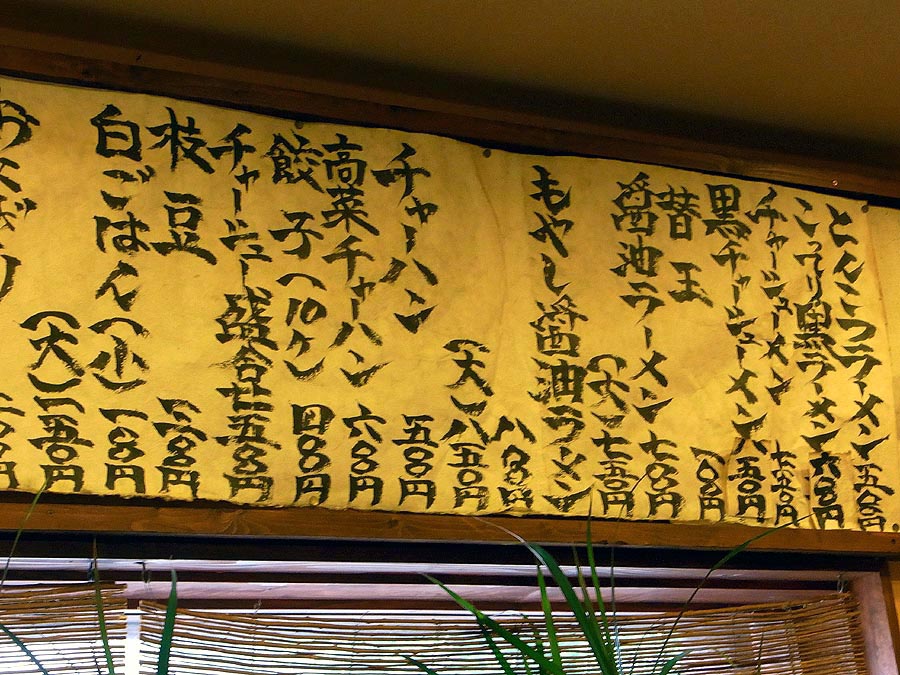 とんこつラーメン 五〇〇円
こってり黒ラーメン 六〇〇円
チャーシューメン 七五〇円
黒チャーシューメン 八五〇円
替玉 一〇〇円
醤油ラーメン 七〇〇円
(大) 七五〇円
もやし醤油ラーメン
八〇〇円
(大) 八五〇円
チャーハン 五〇〇円
高菜チャーハン 六〇〇円
餃子(10ケ) 四〇〇円
チャーシュー盛合せ 五〇〇円
枝豆 三〇〇円
白ごはん(小) 一〇〇円
(大) 一五〇円
おにぎり